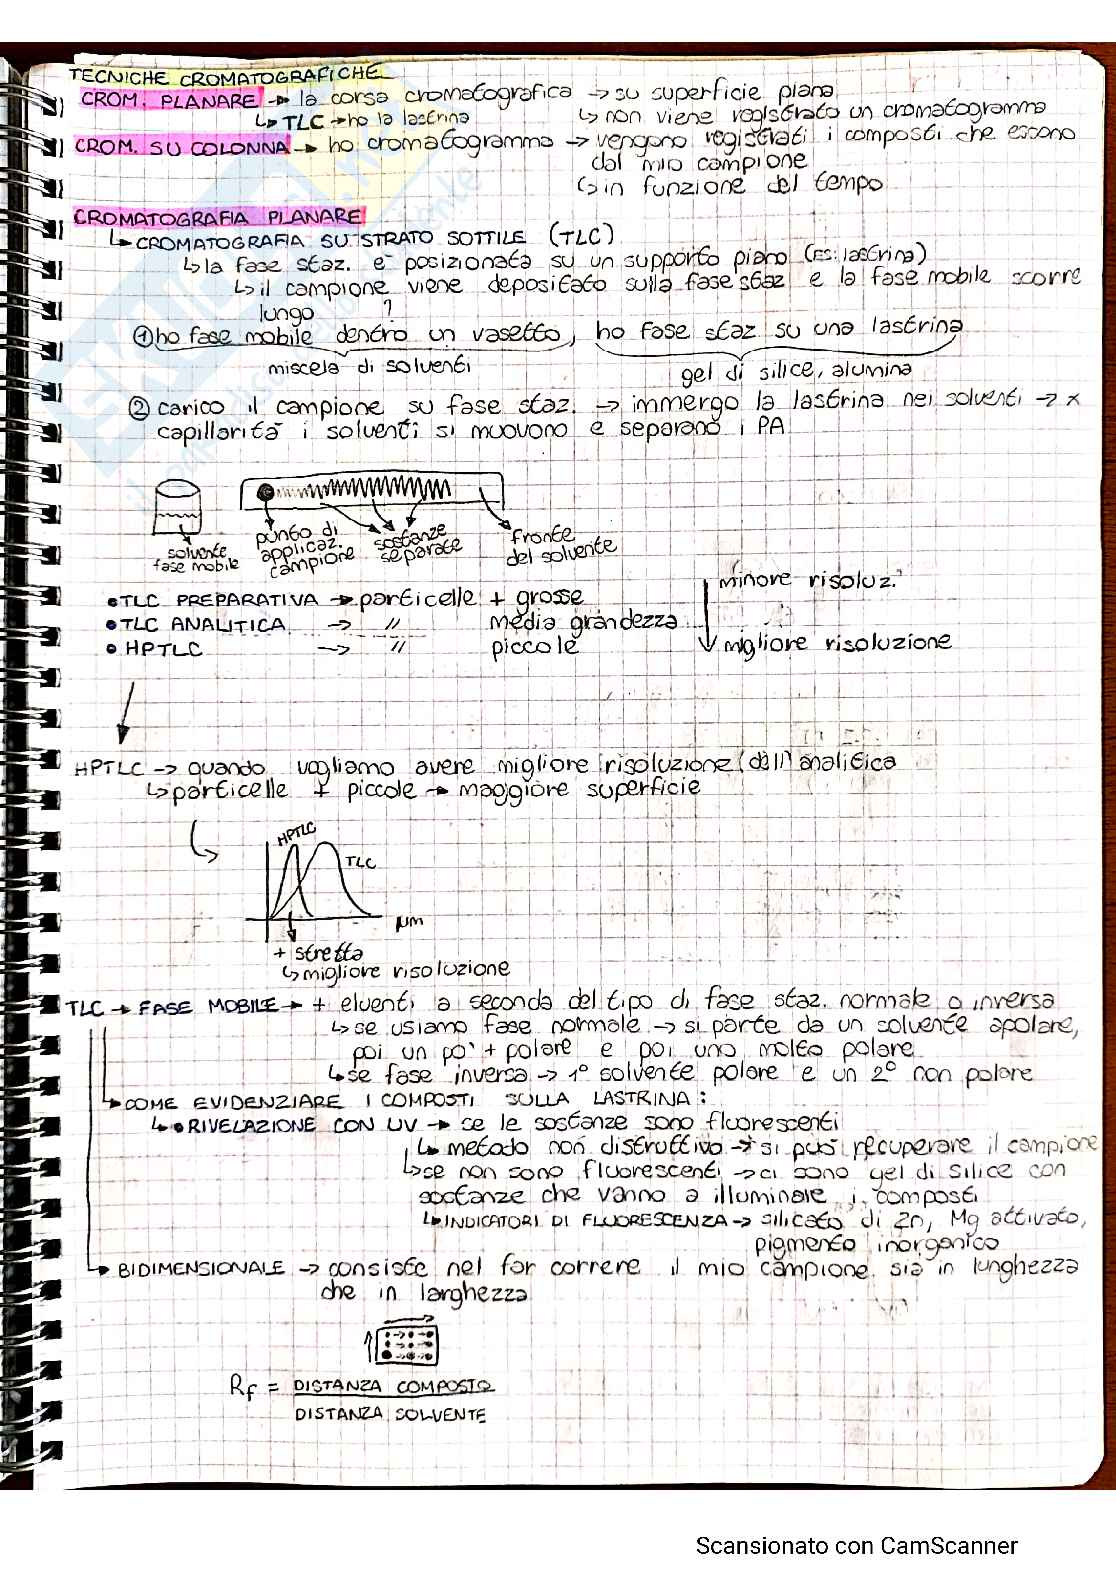 TECNICHE CROMATOGRAFICHE
CROM. PLANARE → la corsa cromatografica → su superficie piana
↳ TLC → ho la lastrina ↳ non viene registrato un cromatogramma
CROM. SU COLONNA → ho cromatogramma → vengono registrati i composti che escono
dal mio campione
↳ in funzione del tempo
CROMATOGRAFIA PLANARE
↳ CROMATOGRAFIA SU STRATO SOTTILE (TLC)
↳ la fase staz. è posizionata su un supporto piano (ES: lastrina)
↳ il campione viene depositato sulla fase staz e la fase mobile scorre
lungo ?
① ho fase mobile dentro un vasetto, ho fase staz su una lastrina
miscela di solventi gel di silice, alumina
② carico il campione su fase staz. → immergo la lastrina nei solventi → x
capillarità i solventi si muovono e separano i PA
solvente
fase mobile
punto di
applicaz.
campione
sostanze
separate
fronte
del solvente
• TLC PREPARATIVA → particelle + grosse
• TLC ANALITICA → " media grandezza
• HPTLC → " piccole
minore risoluz.
migliore risoluzione
HPTLC → quando vogliamo avere migliore risoluzione (dall') analitica
↳ particelle + piccole → maggiore superficie
HPTLC
TLC
μm
+ stretta
↳ migliore risoluzione
TLC → FASE MOBILE → + eluenti a seconda del tipo di fase staz. normale o inversa
↳ se usiamo fase normale → si parte da un solvente apolare,
poi un po' + polare e poi uno molto polare
↳ se fase inversa → 1° solvente polare e un 2° non polare
↳ COME EVIDENZIARE I COMPOSTI SULLA LASTRINA:
↳ • RIVELAZIONE CON UV → se le sostanze sono fluorescenti
↳ metodo non distruttivo → si può recuperare il campione
↳ se non sono fluorescenti → ci sono gel di silice con
sostanze che vanno a illuminare i composti
↳ INDICATORI DI FLUORESCENZA → silicato di Zn, Mg attivato,
pigmento inorganico
↳ BIDIMENSIONALE → consiste nel far correre il mio campione sia in lunghezza
che in larghezza
Rf = DISTANZA COMPOSTO
DISTANZA SOLVENTE
Scansionato con CamScanner